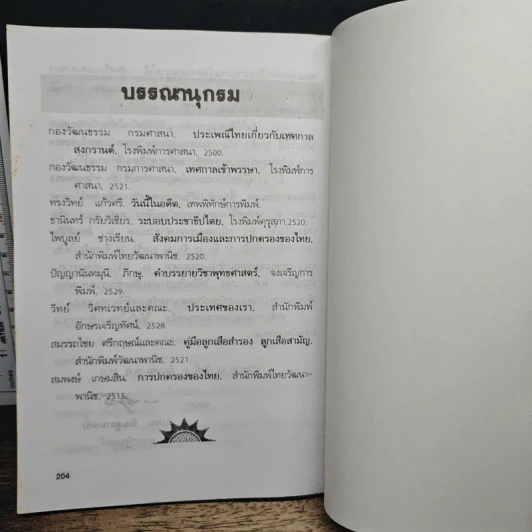 บรรณานุกรม
กองวัฒนธรรม กรมศาสนา, ประเพณีไทยเกี่ยวกับเทศกาล
สงกรานต์, โรงพิมพ์การศาสนา, 2500.
กองวัฒนธรรม กรมการศาสนา, เทศกาลเข้าพรรษา, โรงพิมพ์การ
ศาสนา, 2521.
ทรงวิทย์ แก้วศรี, วันนี้ในอดีต, เทพพิทักษ์การพิมพ์.
ธานินทร์ กรัยวิเชียร, ระบอบประชาธิปไตย, โรงพิมพ์คุรุสภา,2520.
ไพบูลย์ ช่างเรียน, สังคมการเมืองและการปกครองของไทย,
สำนักพิมพ์ไทยวัฒนาพานิช, 2520.
ปัญญานันทมุนี, ภิกษุ, คำบรรยายวิชาพุทธศาสตร์, จงเจริญการ
พิมพ์, 2529.
วิทย์ วิศทเวทย์และคณะ, ประเทศของเรา, สำนักพิมพ์
อักษรเจริญทัศน์, 2528.
สมรรถไชย ศรีกฤษณ์และคณะ, คู่มือลูกเสือสำรอง ลูกเสือสามัญ,
สำนักพิมพ์วัฒนาพานิช, 2521.
สมพงษ์ เกษมสิน, การปกครองของไทย, สำนักพิมพ์ไทยวัฒนา-
พานิช, 2515.
204